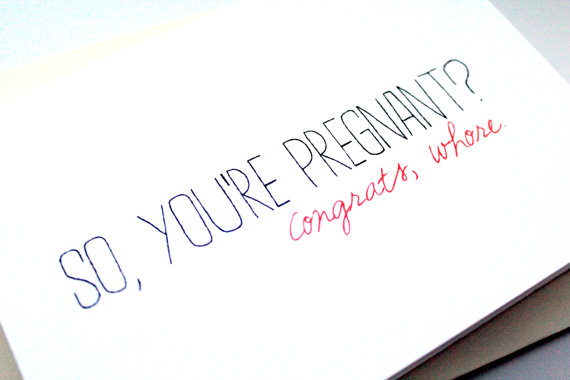 SO, YOU'RE PREGNANT?
congrats, whore.